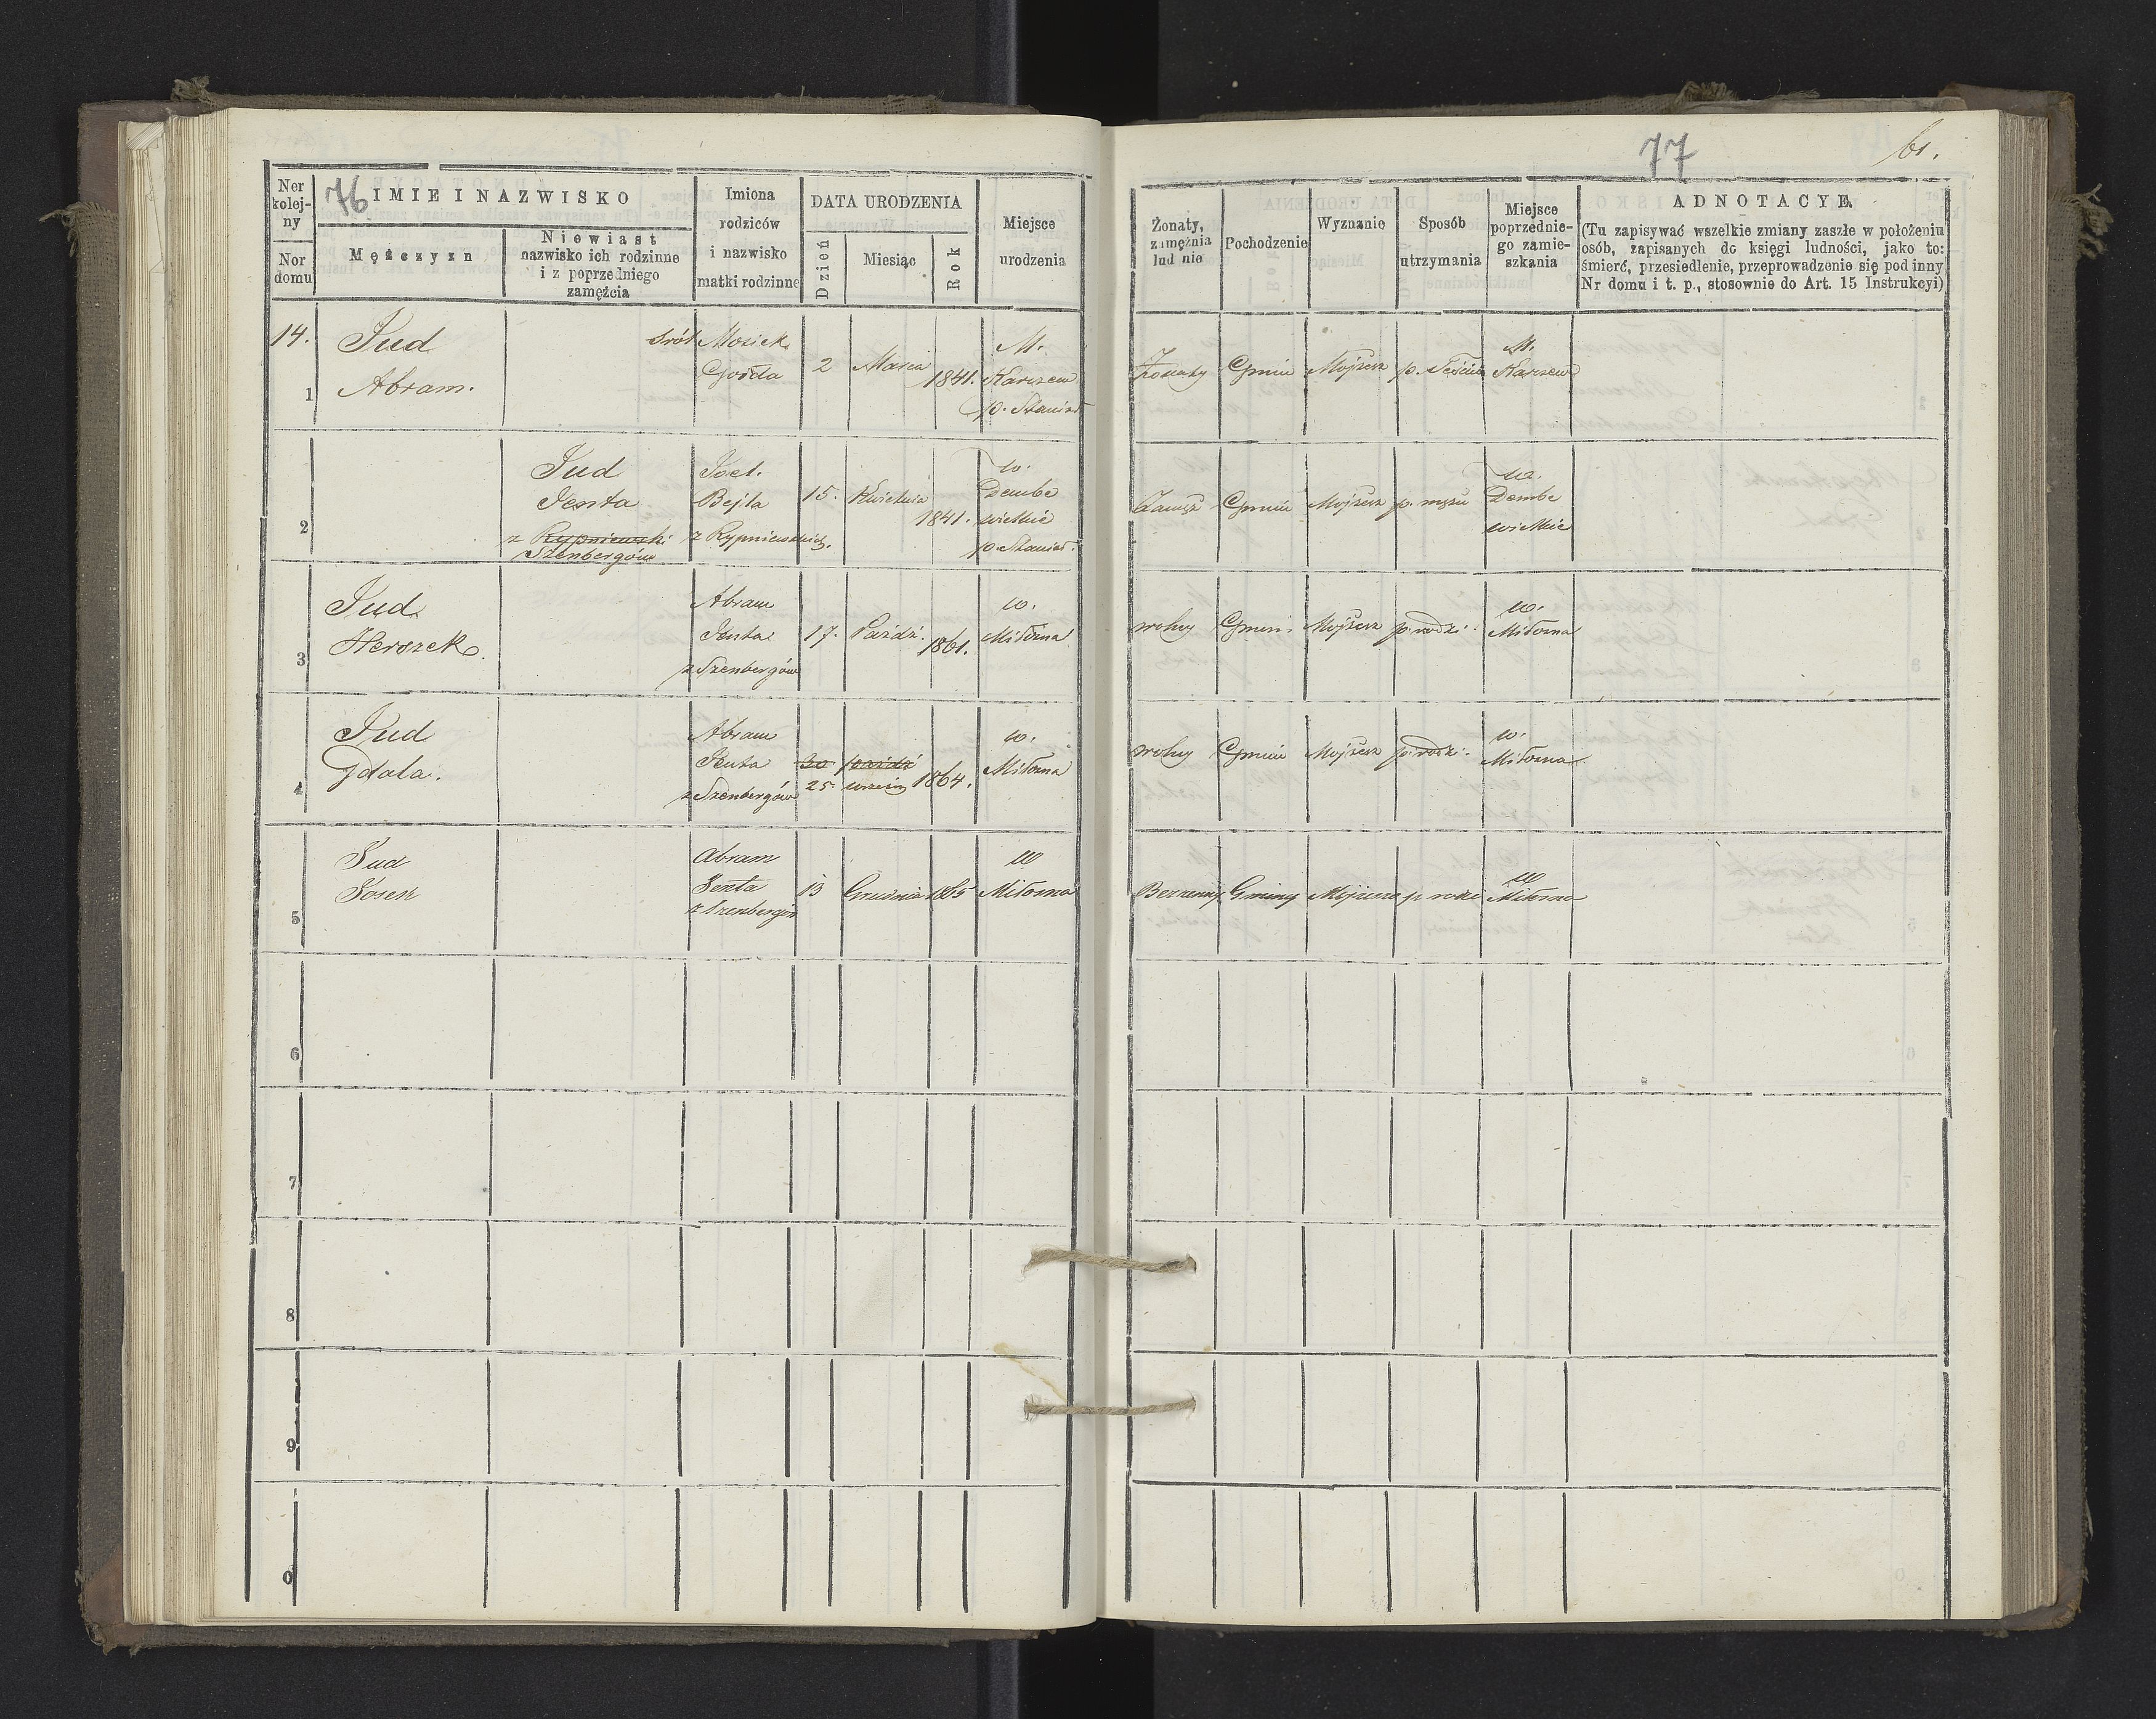 76
77
61.
Ner kolej-ny
Nor domu
IMIE I NAZWISKO
Mężczyzn
Niewiast
nazwisko ich rodzinne
i z poprzedniego
zamężcia
Imiona
rodziców
i nazwisko
matki rodzinne
DATA URODZENIA
Dzień
Miesiąc
Rok
Miejsce
urodzenia
Żonaty,
zamężnia
lud nie
Pochodzenie
Wyznanie
Sposób
utrzymania
Miejsce
poprzednie-
go zamie-
szkania
ADNOTACYE.
(Tu zapisywać wszelkie zmiany zaszłe w położeniu
osób, zapisanych do księgi ludności, jako to:
śmierć, przesiedlenie, przeprowadzenie się pod inny
Nr domu i t. p., stosownie do Art. 15 Instrukcyi)
14.
1
Jud
Abram.
Mosiek
2
Marca
1841.
M.
Karczew
Żonaty
Gmin
Mojżesz
p. Teściu
M.
Karczew
2
Jud
Jenta
z Rypniewski
Szenbergów
Joel.
Bejla
z Rypniewskich.
15.
Kwietnia
1841.
w.
Dembe
wielkie
p. Stanisł.
Zamęż
Gmin
Mojżesz
p. mężu
w.
Dembe
wielkie
3
Jud
Herszek
Abram
Jenta
z Szenbergów
17.
Paźdź.
1861.
w.
Miłosna
wolny
Gmin
Mojżesz
p. rodzi.
w.
Miłosna
4
Jud
Gdala.
Abram
Jenta
z Szenbergów
30 paźdź
25.
1864.
w.
Miłosna
wolny
Gmin
Mojżesz
p. rodzi.
w.
Miłosna
5
Jud
Josek
Abram
Jenta
z Szenbergów
13
Grudnia
1865
w
Miłosna
Bezżenny
Gminny
Mojżesz
p rodzi
w
Miłosna
6
7
8
9
0